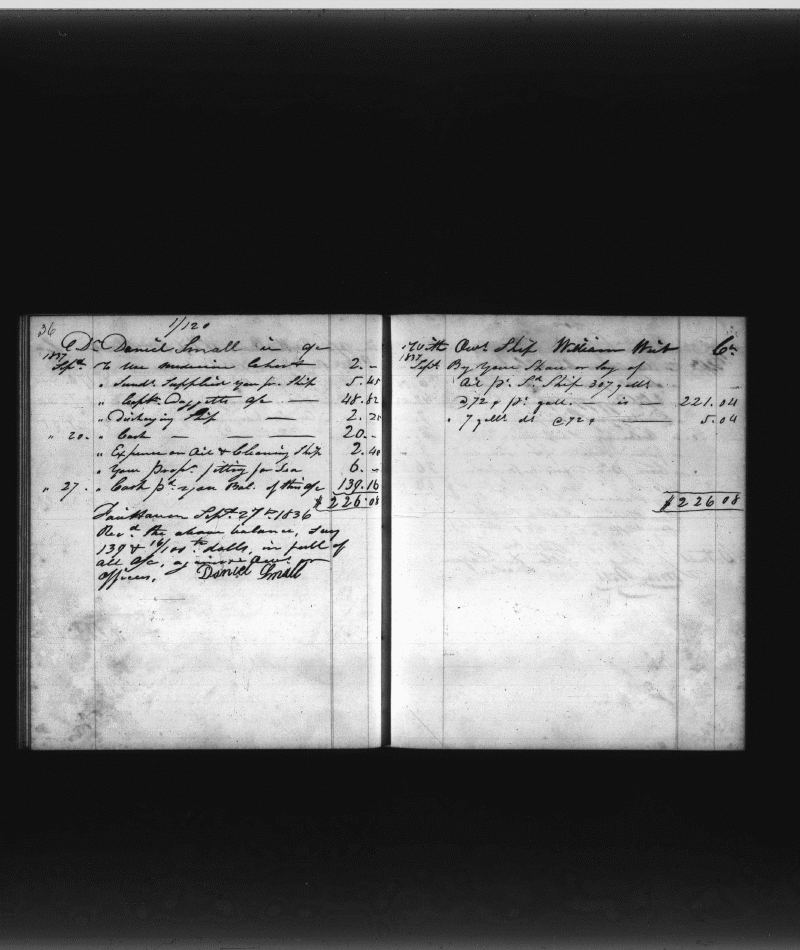 36
1/120
Dr Daniel Small in a/c
1837
Sept. To Use Medicine Chest 2.-
" Sund. Supplied you pr. Ship 5.45
" Capt. Daggetts a/c 48.82
" Discharging Ship 2.25
" 20. " Cash 20.-
" Expense on Oil & Cleaning Ship 2.40
" Your Propn. fitting for Sea 6.-
" 27. " Cash pd. you Bal. of this a/c 139.16
$226.08
Fairhaven Septr. 27th 1836
Recd. the above balance, say
139 & 16/100ths dolls, in full of
all a/c, against Owrs. or
Officers, Daniel Small
With Owrs. Ship William Wirt Cr.
1837
Sept. By Your Share or Lay of
Oil pr. Sd Ship 307 galls
@72¢ pr. gall. — is — 221.04
" 7 galls. do @72¢ 5.04
$226.08